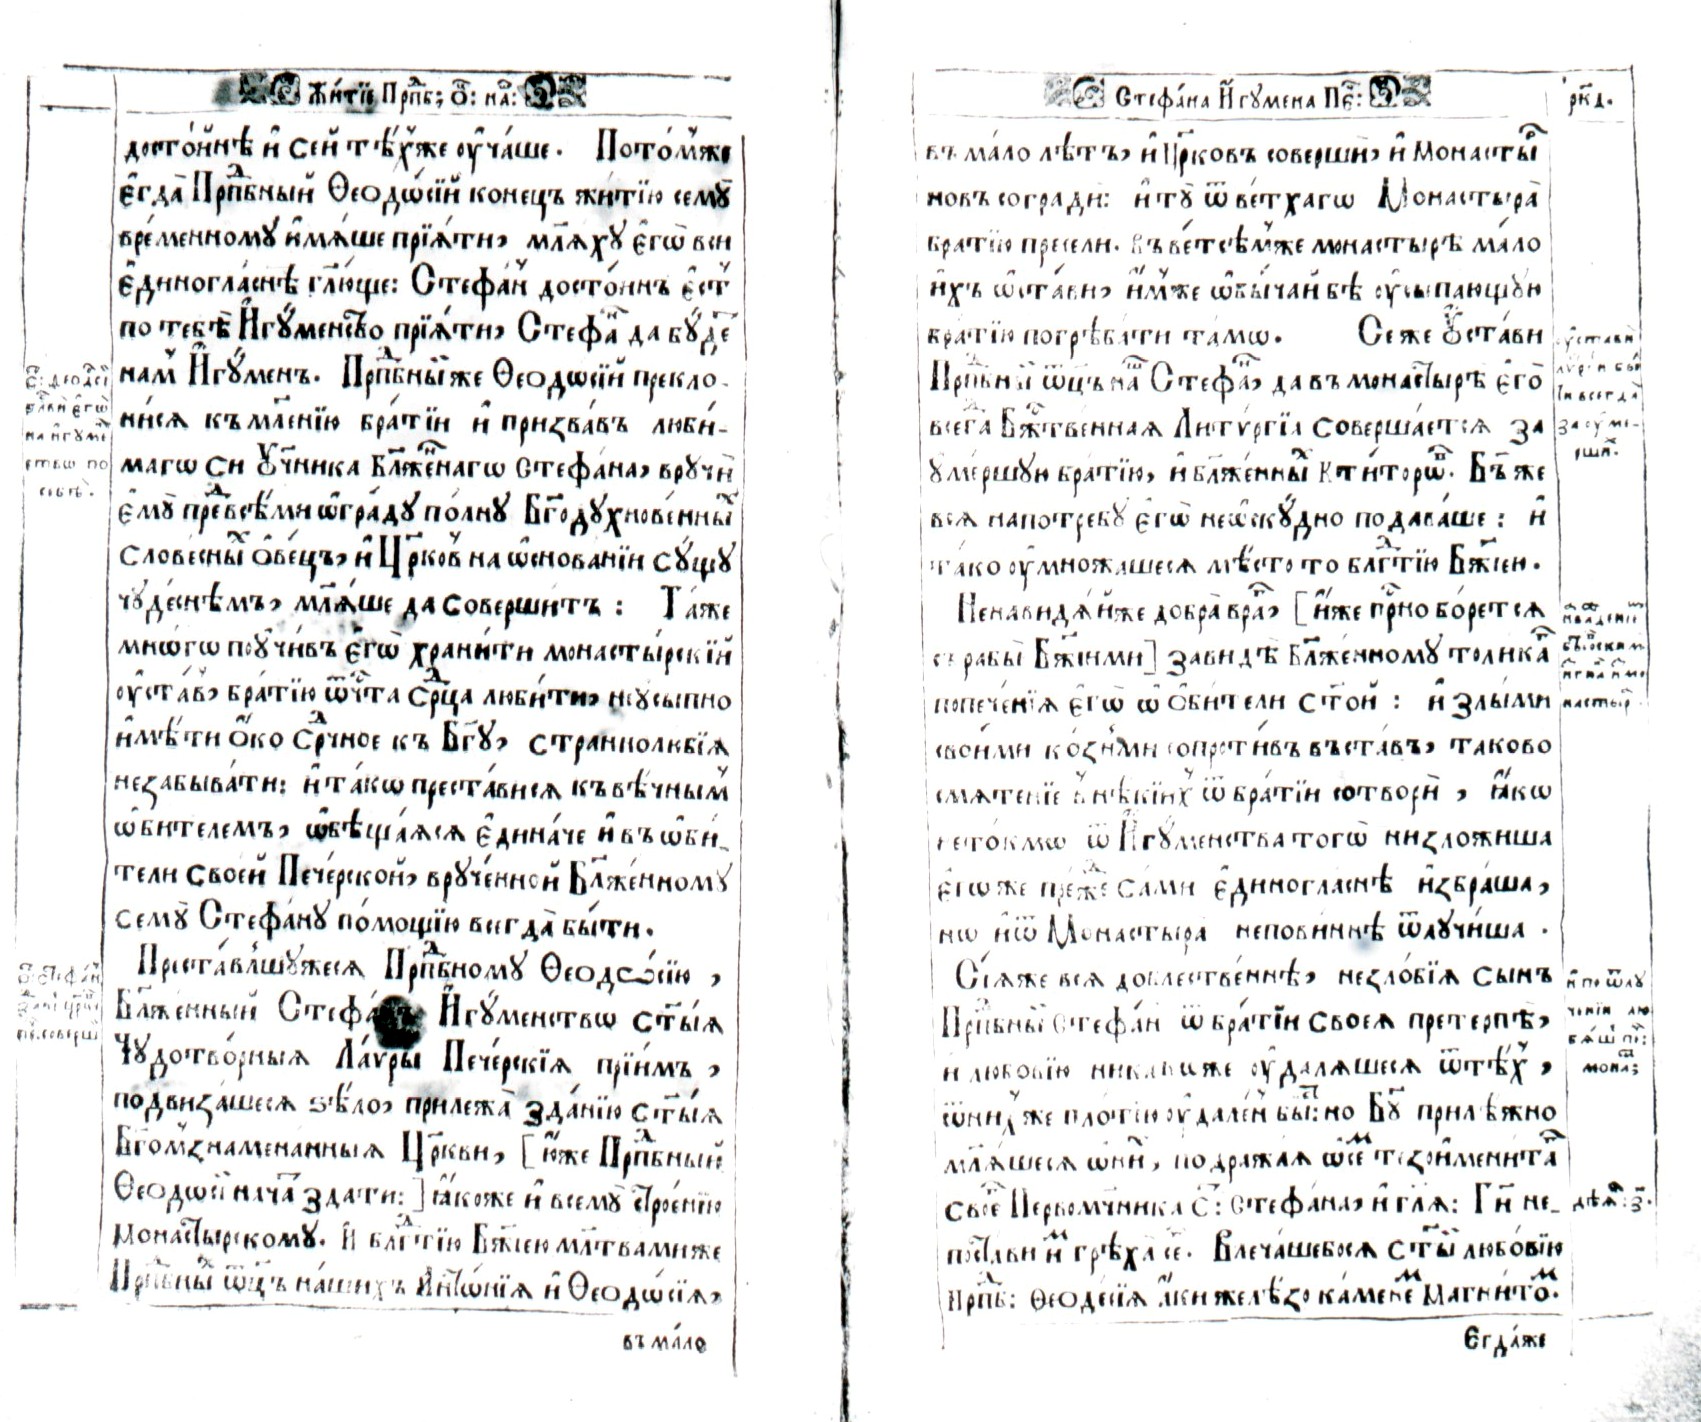 Житїе Прпⷣб: Ѻ҃: на́ш:
досто́йнѣ и҆ сей тѣ́хъже оу҆ча́ше. Пото́мже
є҆гда̀ Прпⷣбный Ѳеодѡ́сїй конецъ житїю семꙋ̀
вре́менномꙋ и҆мѧ́ше прїѧ́ти, млѧ́хꙋ є҆гѡ̀ вси
є҆диногла́снѣ гл҃юще: Стефа́нъ досто́инъ є҆стъ
по тебѣ̀ И҆гꙋ́менство прїѧ́ти, Стефа́нъ да бꙋ́детъ
на́мъ И҆гꙋ́менъ. Прпⷣбныйже Ѳеодѡсїй прекло-
ни́сѧ къ мл҃енїю бра́тїи и҆ призва́въ люби́-
магѡ си оу҆ч҃ника Бл҃же́ннагѡ Стефа́на, врꙋчѝ
є҆мꙋ̀ пре́дъ всѣ́ми ѡ҆гра́дꙋ по́лнꙋ Бг҃одꙋхнове́нныхъ
слове́сныхъ ѻ҆ве́цъ, и҆ Цр҃ковъ на ѡ҆снованїи сꙋ́щꙋ
чꙋде́снѣмъ, млѧ́ше да соверши́тъ: Та́же
мнѡ́гѡ поꙋ҆чи́въ є҆гѡ̀ храни́ти монасты́рскїй
оу҆ста́въ, бра́тїю ѿ чи́ста Срⷣца люби́ти, неꙋсыпно
и҆мѣ́ти ѻ҆́ко Срⷣчное къ Бг҃ꙋ, страннолюбїѧ
незабыва́ти: и҆ та́кѡ преста́висѧ къ вѣ́чнымъ
ѡ҆бителемъ, ѡ҆бѣща́ѧсѧ є҆дина́че и҆ въ ѡ҆би́-
тели свое́й Пече́рской, врꙋче́нной Бл҃же́нномꙋ
семꙋ̀ Стефа́нꙋ по́мощїю всегда̀ бы́ти.
Преста́вльшꙋжесѧ Прпⷣбномꙋ Ѳеодѡ́сїю,
Бл҃же́нный Стефа́нъ И҆гꙋ́менство ст҃ы́ѧ
Чꙋдотво́рныѧ Ла́ѵры Пече́рскїѧ прїи́мъ,
подвиза́шесѧ ѕѣ́ло, прилежа̀ зда́нїю ст҃ы́ѧ
Бг҃омъзнамена́нныѧ Цр҃кви, [ю҆́же Прпⷣбный
Ѳеодѡсїй нача́тъ здати:] ꙗ҆́коже и҆ всемꙋ̀ строе́нїю
Монасты́рскомꙋ. И҆ блгⷣтїю Бж҃їею мл҃твамиже
Прпⷣбныхъ ѿц҃ъ на́шихъ А҆нтѡ́нїѧ и҆ Ѳеодѡ́сїѧ,
въ ма́ло
Стефа́на И҆гꙋмена Пе:
рк҃д.
въ ма́ло лѣ́тъ, и҆ Цр҃ковъ совершѝ, и҆ Монасты́рь
новъ согради: и҆ тꙋ̀ ѿ ве́тхагѡ Монастырѧ̀
братїю пресели. Въ ве́тсѣмже монастырѣ ма́ло
и҆́хъ ѡ҆ста́ви, и҆́мже ѡ҆бы́чай бѣ оу҆сыпающꙋю
бра́тїю погрѣба́ти та́мѡ. Се же оу҆ста́ви
Прпⷣбный ѿц҃ъ на́шъ Стефа́нъ, да въ монастырѣ є҆гѡ̀
всегда̀ Бж҃твенная Литꙋргїа соверша́етсѧ за
ꙋме́ршꙋю бра́тїю, и҆ бл҃же́нныхъ Ктиторѡвъ. Бг҃ъже
всѧ на потребꙋ є҆гѡ̀ неѡ҆скꙋ́дно подава́ше: и҆
та́ко оу҆множа́шесѧ мѣ́сто то блгⷣтїю Бж҃їею.
Ненави́дѧйже добра̀ вра́гъ, [и҆́же прⷭ҇но бо́ретсѧ
съ рабы̀ Бж҃їими] зави́дѣ Бл҃же́нномꙋ толика
попече́нїѧ є҆гѡ̀ ѡ҆ ѻ҆би́тели ст҃о́й: и҆ злы́ми
свои́ми ко́зньми сопроти́въ въста́въ, таково
смѧте́нїе ѿ братїи сотворѝ, ꙗ҆́кѡ
нето́кмѡ ѿ И҆гꙋ́менства того̀ низложиша
є҆го́же пре́жде са́ми є҆диногла́снѣ и҆збра́ша,
но и҆ ѿ Монастырѧ̀ непови́ннѣ ѿлꙋчи́ша.
Сїѧ́же всѧ до́блественнѣ, незло́бїѧ сынъ
Прпⷣбный Стефа́нъ ѿ бра́тїи своеѧ претерпѣ̀,
и҆ любо́вїю никакѡже оу҆далѧ́шесѧ ѿ тѣ́хъ,
ѿ ни́хже пло́тїю оу҆дале́нъ бы́сть: но Бг҃ꙋ прилѣ́жно
мл҃ѧшесѧ ѡ҆ ни́хъ, подража́ѧ ѡ҆ се́мъ тезои҆мени́та
своего̀ Первом҃ченика С: Стефа́на, и҆ гл҃ѧ: Гд҃и не-
поста́ви и҆́мъ грѣха̀ сегѡ̀. Влеча́шебосѧ ст҃ы́й любо́вїю
Прпⷣб: Ѳеодо́сїѧ а҆́ки желѣ́зо ка́менемъ Магни́томъ.
Є҆гда́же
оу҆ставѝ
лїтꙋргїи бы́-
ти всегда̀
за оу҆ме́-
ршихъ.
и҆ по ѿлꙋ
че́нїи лю
бѧ́ше пе:
мона:
дѣѧ́н: з҃.